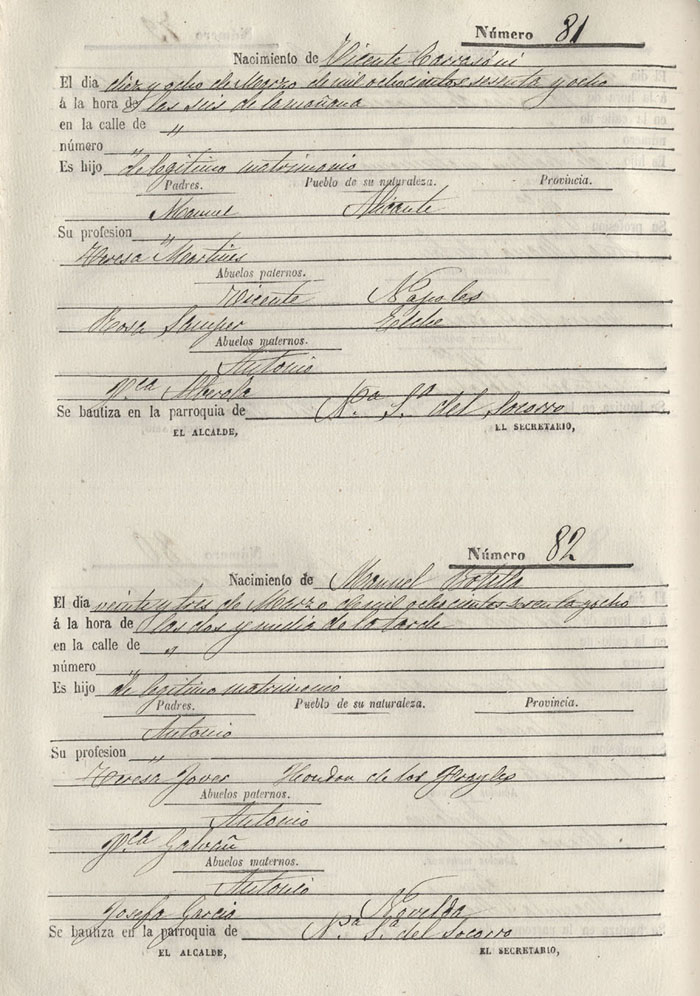 Número 81
Nacimiento de Vicente Carrasioni
El dia diez y ocho de Marzo de mil ochocientos sesenta y ocho
á la hora de las seis de la mañana
en la calle de "
número "
Es hijo de legitimo matrimonio
Padres. Pueblo de su naturaleza. Provincia.
Manuel Alicante
Su profesion "
Teresa Martines
Abuelos paternos.
Vicente Napoles
Rosa Samper Elche
Abuelos maternos.
Antonio
Alberola
Se bautiza en la parroquia de Nª Sª del Socorro
EL ALCALDE, EL SECRETARIO,
Número 82
Nacimiento de Manuel Botella
El dia veinte y tres de Marzo de mil ochocientos sesenta y ocho
á la hora de las dos y media de la tarde
en la calle de "
número "
Es hijo de legitimo matrimonio
Padres. Pueblo de su naturaleza. Provincia.
Antonio
Su profesion "
Teresa Jover Hondon de los Frayles
Abuelos paternos.
Antonio
Galvañ
Abuelos maternos.
Antonio
Josefa Garcia Novelda
Se bautiza en la parroquia de Nª Sª del Socorro
EL ALCALDE, EL SECRETARIO,